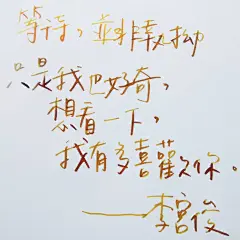 等待，並非執拗
只是我也好奇，
想看一下，
我有多喜歡你。
——李宮俊